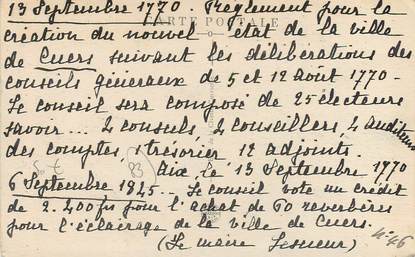 13 Septembre 1770. Règlement pour la
CARTE POSTALE
création du nouvel état de la ville
de Cuers suivant les délibérations des
conseils généraux de 5 et 12 août 1770-
Le conseil sera composé de 25 électeurs
savoir... 2 consuls, 2 conseillers, 4 auditeurs
des comptes, 1 trésorier 12 adjoints.
Aix, le 13 Septembre 1770
(83)
6 Septembre 1845... Le conseil vote un crédit
de 2.400 frs pour l'achat de 60 reverbères
pour l'éclairage de la ville de Cuers.
(Le maire Lesueur)
n° 46